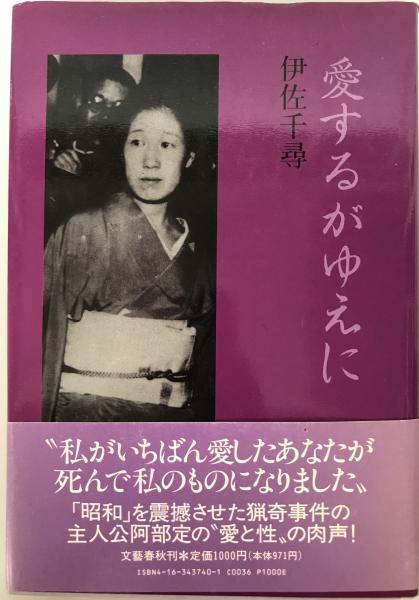 愛するがゆえに
伊佐千尋
〝私がいちばん愛したあなたが
死んで私のものになりました〟
「昭和」を震撼させた猟奇事件の
主人公阿部定の〝愛と性〟の肉声！
文藝春秋刊＊定価1000円(本体971円)
ISBN4-16-343740-1 C0036 P1000E